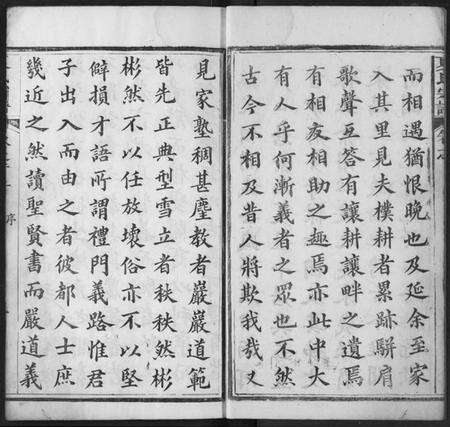 而相遇猶恨晚也及延余至家
入其里見夫樸耕者累跡駢肩
歌聲互答有讓耕讓畔之遺焉
有相友相助之趣焉亦此中大
有人乎何漸義者之眾也不然
古今不相及昔人將欺我哉又
見家塾稠甚塵教者嚴嚴道範
皆先正典型雪立者秩秩然彬
彬然不以任放壞俗亦不以堅
僻損才語所謂禮門義路惟君
子出入而由之者彼都人士庶
幾近之然讀聖賢書而嚴道義
序